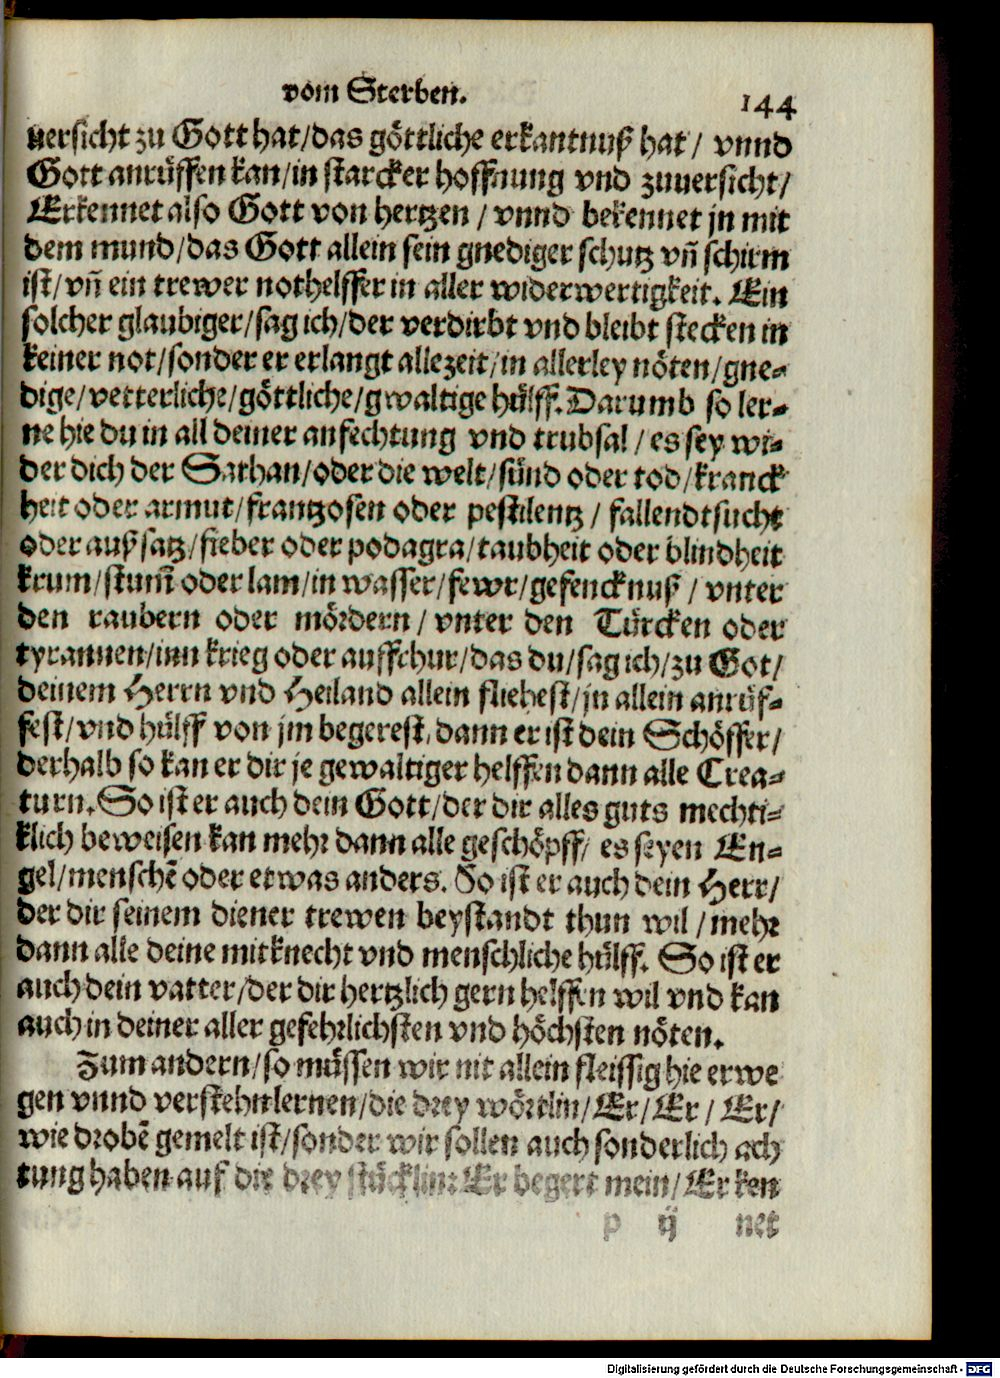 vom Sterben.
144
uersicht zu Gott hat/das göttliche erkantnuß hat/ vnnd
Gott anrüffen kan/in starcker hoffnung vnd zuuersicht/
Erkennet also Gott von hertzen / vnnd bekennet jn mit
dem mund/das Gott allein sein gnediger schutz vñ schirm
ist/vñ ein trewer nothelffer in aller widerwertigkeit. Ein
solcher glaubiger/sag ich/der verdirbt vnd bleibt stecken in
keiner not/sonder er erlangt allezeit/in allerley nöten/gne-
dige/vetterliche/göttliche/gwaltige hülff. Darumb so ler-
ne hie du in all deiner anfechtung vnd trubsal/es sey wi-
der dich der Sathan/oder die welt/sünd oder tod/kranck
heit oder armut/frantzosen oder pestilentz / fallendtsucht
oder außsatz/fieber oder podagra/taubheit oder blindheit
krum/stum̃ oder lam/in wasser/fewr/gefencknuß / vnter
den raubern oder mördern/ vnter den Türcken oder
tyrannen/inn krieg oder auffrhur/das du/sag ich/zu Got/
deinem Herrn vnd Heiland allein fliehest/jn allein anrüf-
fest/vnd hülff von jm begerest, dann er ist dein Schöffer/
derhalb so kan er dir je gewaltiger helffen dann alle Crea-
turn. So ist er auch dein Gott/der dir alles guts mechti-
klich beweisen kan mehr dann alle geschöpff/ es seyen En-
gel/menschē oder etwas anders. So ist er auch dein Herr/
der dir seinem diener trewen beystandt thun wil/mehr
dann alle deine mitknecht vnd menschliche hülff. So ist er
auch dein vatter/der dir hertzlich gern helffen wil vnd kan
auch in deiner aller gefehrlichsten vnd höchsten nöten.
Zum andern/so müssen wir nit allein fleissig hie erwe
gen vnnd verstehn lernen/die drey wörtlin/Er/Er/ Er/
wie drobē gemelt ist/sonder wir sollen auch sonderlich ach
tung haben auf die drey stücklin: Er begert mein/Er ken
p ij net
Digitalisierung gefördert durch die Deutsche Forschungsgemeinschaft - DFG